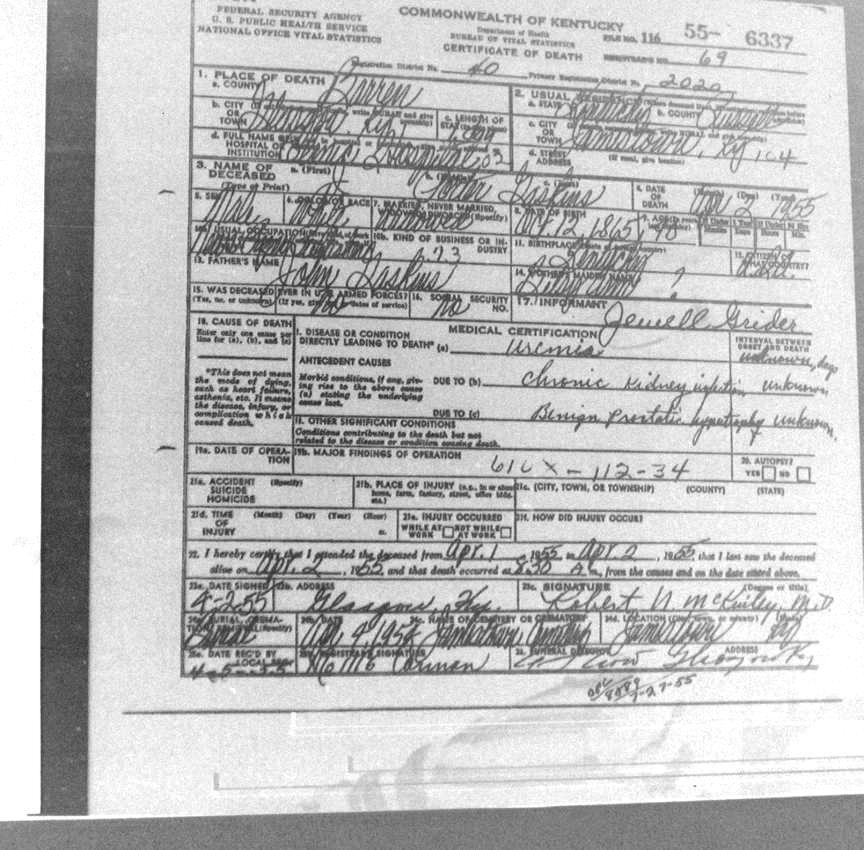 FEDERAL SECURITY AGENCY
U. S. PUBLIC HEALTH SERVICE
NATIONAL OFFICE VITAL STATISTICS
COMMONWEALTH OF KENTUCKY
Department of Health
BUREAU OF VITAL STATISTICS
CERTIFICATE OF DEATH
FILE NO. 116 55- 6337
REGISTRAR'S NO. 69
Registration District No. 40 Primary Registration District No. 2020
1. PLACE OF DEATH
a. COUNTY Barren
2. USUAL
a. STATE Kentucky b. COUNTY Russell
b. CITY OR TOWN Glasgow, Ky. c. LENGTH OF
c. CITY OR TOWN Jamestown, Ky 104
d. FULL NAME
HOSPITAL OR
INSTITUTION Hospital
d. STREET ADDRESS
3. NAME OF DECEASED (Type or Print)
a. (First) J Porter Gaskins
4. DATE OF DEATH (Month) (Day) (Year) Apr. 2 1955
5. SEX Male
6. COLOR OR RACE White
7. MARRIED, NEVER MARRIED, WIDOWED, DIVORCED (Specify) Widowed
8. DATE OF BIRTH Oct. 12, 1865
10a. USUAL OCCUPATION
10b. KIND OF BUSINESS OR INDUSTRY
11. BIRTHPLACE Kentucky
13. FATHER'S NAME John Gaskins
14. MOTHER'S MAIDEN NAME ?
15. WAS DECEASED EVER IN U.S. ARMED FORCES? (Yes, no, or unknown) (If yes, give war or dates of service) No
16. SOCIAL SECURITY NO. No
17. INFORMANT Jewell Grider
18. CAUSE OF DEATH
Enter only one cause per line for (a), (b), and (c)
MEDICAL CERTIFICATION
I. DISEASE OR CONDITION DIRECTLY LEADING TO DEATH* (a) uremia
INTERVAL BETWEEN ONSET AND DEATH
unknown, days
*This does not mean the mode of dying, such as heart failure, asthenia, etc. It means the disease, injury, or complication which caused death.
ANTECEDENT CAUSES
Morbid conditions, if any, giving rise to the above cause (a) stating the underlying cause last.
DUE TO (b) Chronic kidney infection unknown
DUE TO (c) Benign prostatic hypotrophy unknown.
II. OTHER SIGNIFICANT CONDITIONS
Conditions contributing to the death but not related to the disease or condition causing death.
19a. DATE OF OPERATION
19b. MAJOR FINDINGS OF OPERATION
610 X - 112-34
20. AUTOPSY?
YES NO
21a. ACCIDENT SUICIDE HOMICIDE (Specify)
21b. PLACE OF INJURY (e.g., in or about home, farm, factory, street, office bldg. etc.)
21c. (CITY, TOWN, OR TOWNSHIP) (COUNTY) (STATE)
21d. TIME OF INJURY (Month) (Day) (Year) (Hour) m.
21e. INJURY OCCURRED
WHILE AT WORK NOT WHILE AT WORK
21f. HOW DID INJURY OCCUR?
22. I hereby certify that I attended the deceased from Apr. 1, 1955 to Apr. 2, 1955, that I last saw the deceased
alive on Apr. 2, 1955 and that death occurred at 8:30 A m., from the causes and on the date stated above.
23a. DATE SIGNED 4-2-55
23b. ADDRESS Glasgow, Ky.
23c. SIGNATURE (Degree or title) Robert N. McKinley, M.D.
24a. BURIAL, CREMATION, REMOVAL (Specify) Burial
24b. DATE Apr. 4, 1955
24c. NAME OF CEMETERY OR CREMATORY Jamestown Cemetery
24d. LOCATION Jamestown Ky
25a. DATE REC'D BY LOCAL REG.
25b. REGISTRAR'S SIGNATURE
ADDRESS